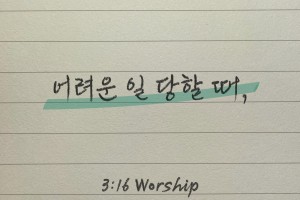 어려운 일 당할 때,
3:16 Worship